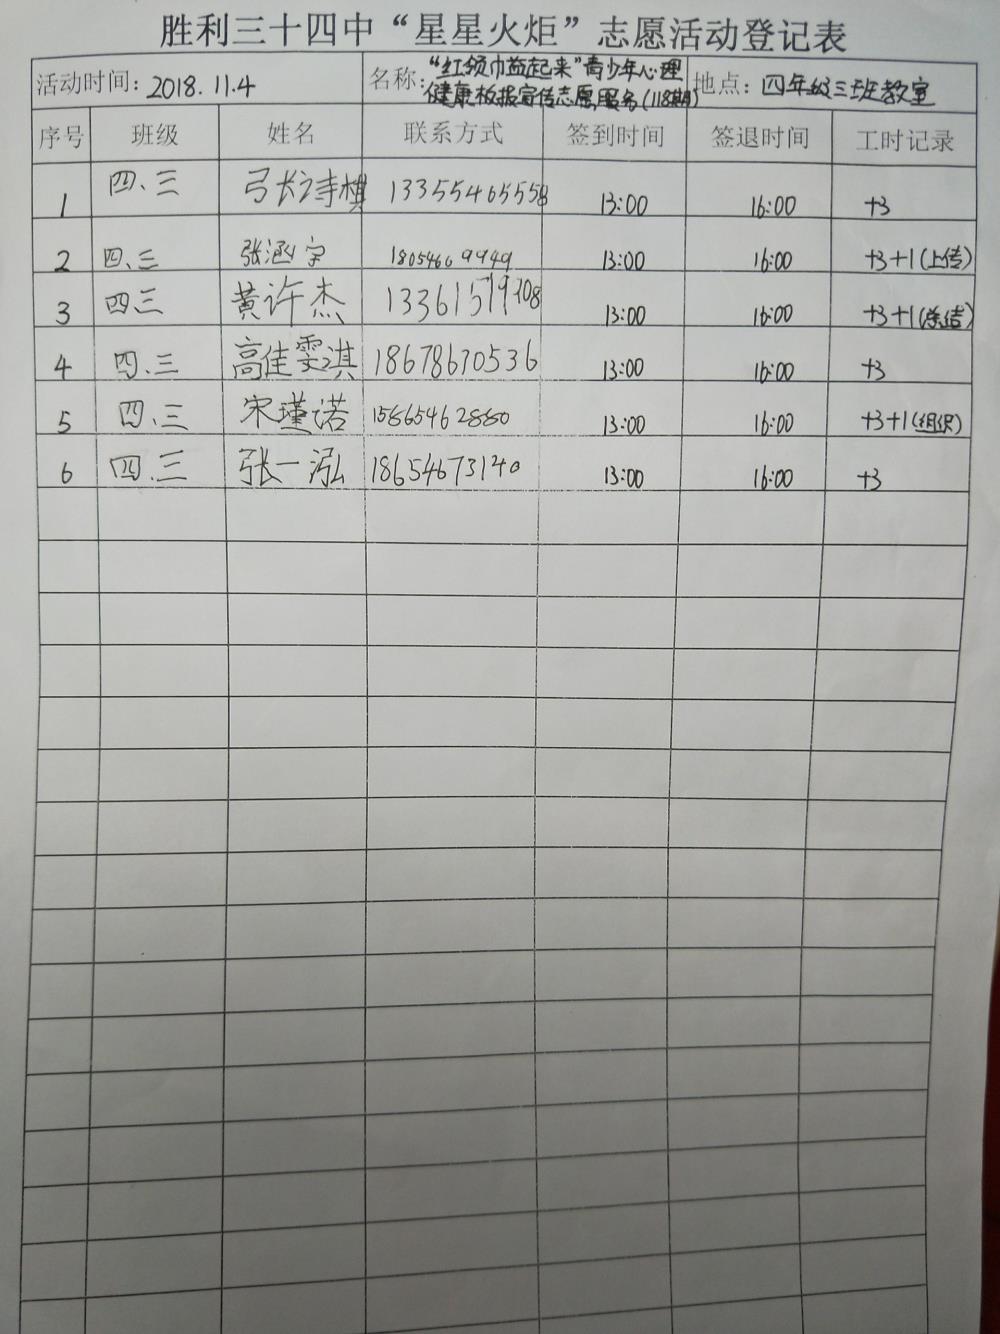 胜利三十四中“星星火炬”志愿活动登记表
活动时间：2018.11.4 名称：“红领巾益起来”青少年心理健康板报宣传志愿服务(118期) 地点：四年级三班教室
序号 班级 姓名 联系方式 签到时间 签退时间 工时记录
1 四、三 张诗棋 13355465558 13:00 16:00 +3
2 四、三 张涵宇 18054609949 13:00 16:00 +3+1(上传)
3 四三 黄许杰 13:00 16:00 +3+1(总结)
4 四、三 高佳雯淇 18678670536 13:00 16:00 +3
5 四、三 宋瑾诺 15865462880 13:00 16:00 +3+1(组织)
6 四.三 张一泓 18654673140 13:00 16:00 +3